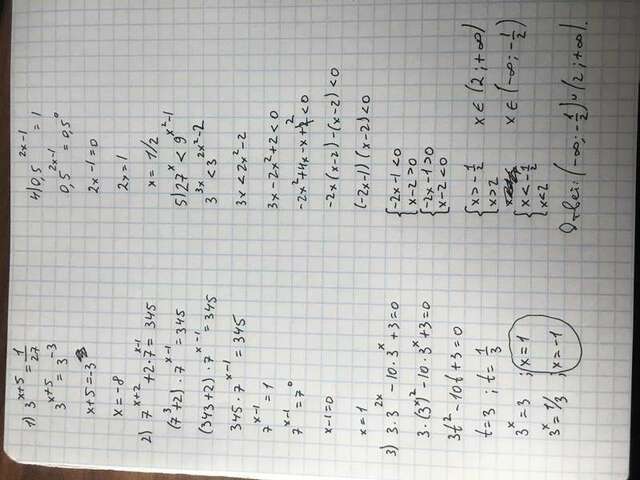 1) 3^{x+5} = 1/27
3^{x+5} = 3^{-3}
x+5 = -3
x = -8
2) 7^{x+2} + 2·7^{x-1} = 345
(7^3+2) · 7^{x-1} = 345
(343+2) · 7^{x-1} = 345
345 · 7^{x-1} = 345
7^{x-1} = 1
7^{x-1} = 7^0
x-1=0
x=1
3) 3·3^{2x} - 10·3^x + 3 = 0
3·(3^x)^2 - 10·3^x + 3 = 0
3t^2 - 10t + 3 = 0
t=3 ; t= 1/3
3^x = 3 ; x = 1
3^x = 1/3 ; x = -1
4) 0,5^{2x-1} = 1
0,5^{2x-1} = 0,5^0
2x-1=0
2x=1
x = 1/2
5) 27^x < 9^{x^2-1}
3^{3x} < 3^{2x^2-2}
3x < 2x^2-2
3x - 2x^2 + 2 < 0
-2x^2 + 4x - x + 2 < 0
-2x(x-2) - (x-2) < 0
(-2x-1) (x-2) < 0
{-2x-1 < 0
x-2 > 0
{-2x-1 > 0
x-2 < 0
{x > -1/2
x > 2
x ∈ (2 ; +∞)
{x < -1/2
x < 2
x ∈ (-∞ ; -1/2)
Ответ: (-∞ ; -1/2) ∪ (2 ; +∞).